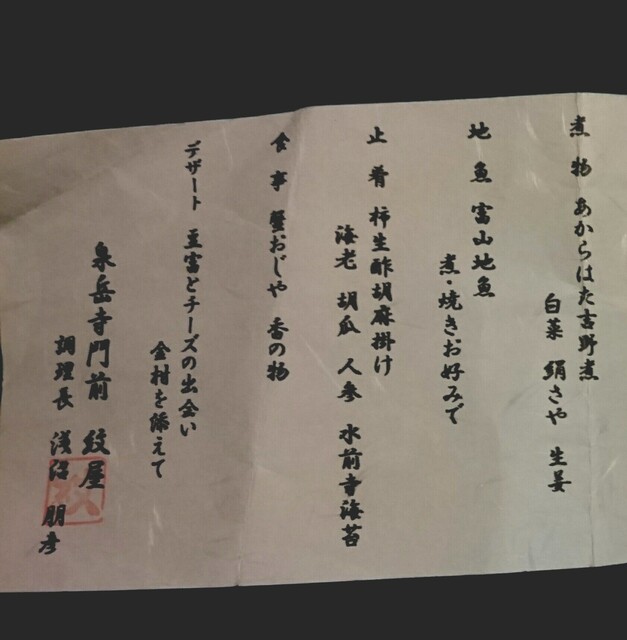 煮物 あからはた吉野煮
白菜 絹さや 生姜
地魚 富山地魚
煮・焼きお好みで
止肴 柿生酢胡麻掛け
海老 胡瓜 人参 水前寺海苔
食事 蟹おじや 香の物
デザート 豆富とチーズの出会い
金柑を添えて
泉岳寺門前 紋屋
調理長 浅沼 朋彦